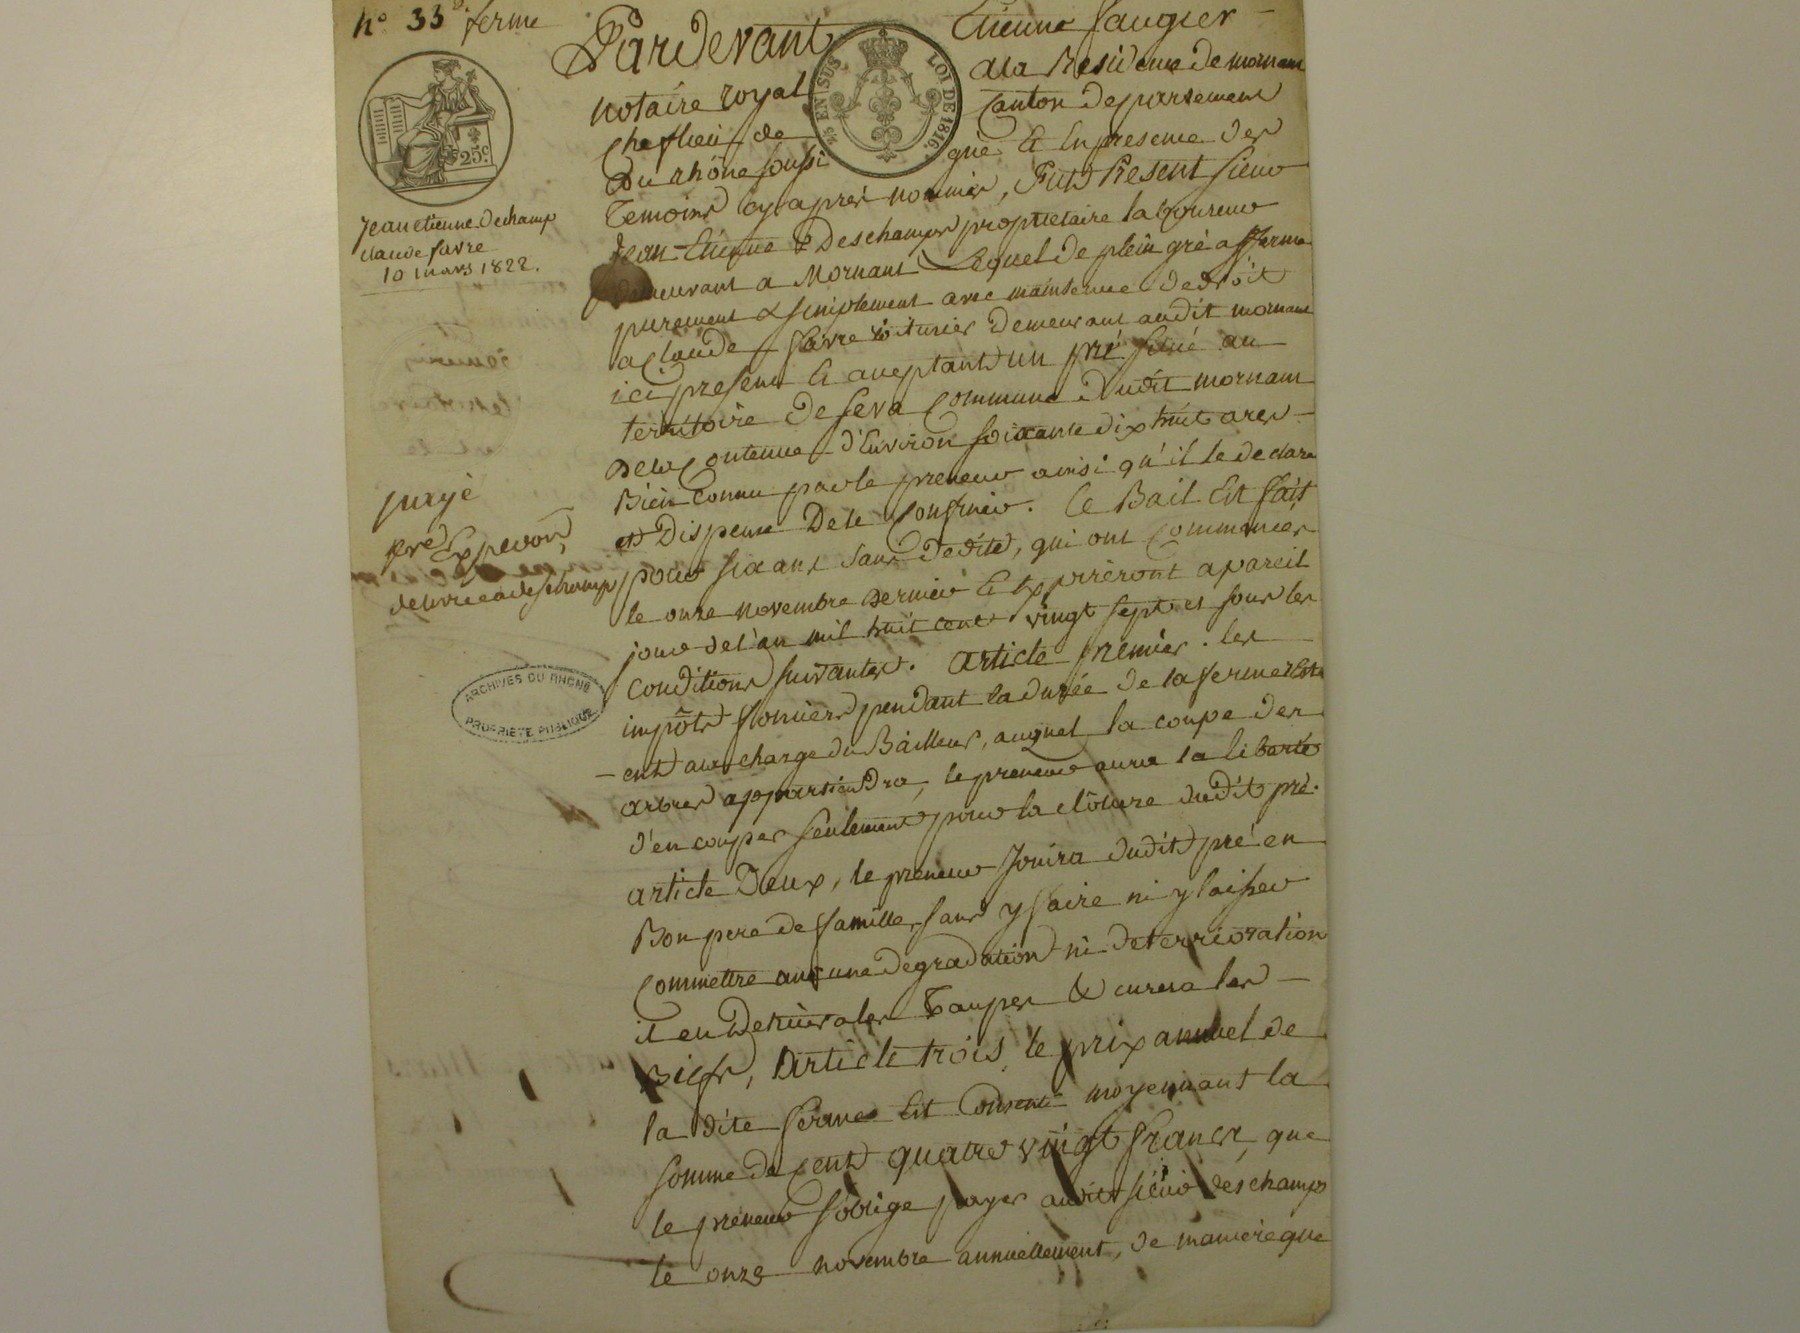 n° 33 ferme
25 c
Jean etienne Dechamp
claude favre
10 mars 1822.
payé
pre Expedon
delivrée a deschamps
ARCHIVES DU RHONE
PROPRIETE PUBLIQUE
EN SUS LOI DE 1816.
Pardevant Etienne Saugier
notaire royal a la Residence de mornant
cheflieu de Canton departement
Du rhône soussi gné & En presence des
Temoins cy apres nommés, Fut Present sieur
Jean-Etienne Deschamps proprietaire laboureur
demeurant a Mornant Lequel de plein gré afferme
purement & simplement avec maintenue de droit
a Claude favre voiturier demeurant audit mornant
ici present & acceptant un pré situé au
territoire de seva Commune dudit mornant
de la Contenue d'Environ soixante dix huit ares
Bien Connu par le preneur ainsi qu'il le declare
et Dispense De le Confiner. Ce Bail Est fait
pour six ans sans dedite, qui ont Commencés
le onze novembre dernier & Expireront a pareil
jour de l'an mil huit cent vingt sept et sous les
Conditions suivantes. article premier. les
impôts fonciers pendant la durée de la ferme Est
ent aux charge du Bailleur, auquel la coupe des
arbres appartiendra, le preneur aura la liberté
d'en couper seulement pour la clôture dudit pré.
article Deux, le preneur Jouira dudit pré en
Bon pere de famille, sans y faire ni y laisser
Commettre aucune degradation ni deterrioration
il en Detruira les Taupes & curera les
Biefs, Article trois, le prix annuel de
la dite ferme Est Consenti moyennant la
somme de Cent quatre vingt francs, que
le preneur s'oblige payer audit sieur deschamps
le onze novembre annuellement, de maniere que